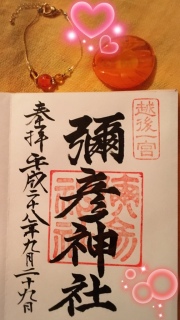 越後一宮
彌彦神社
奉拝 平成二十八年九月二十九日